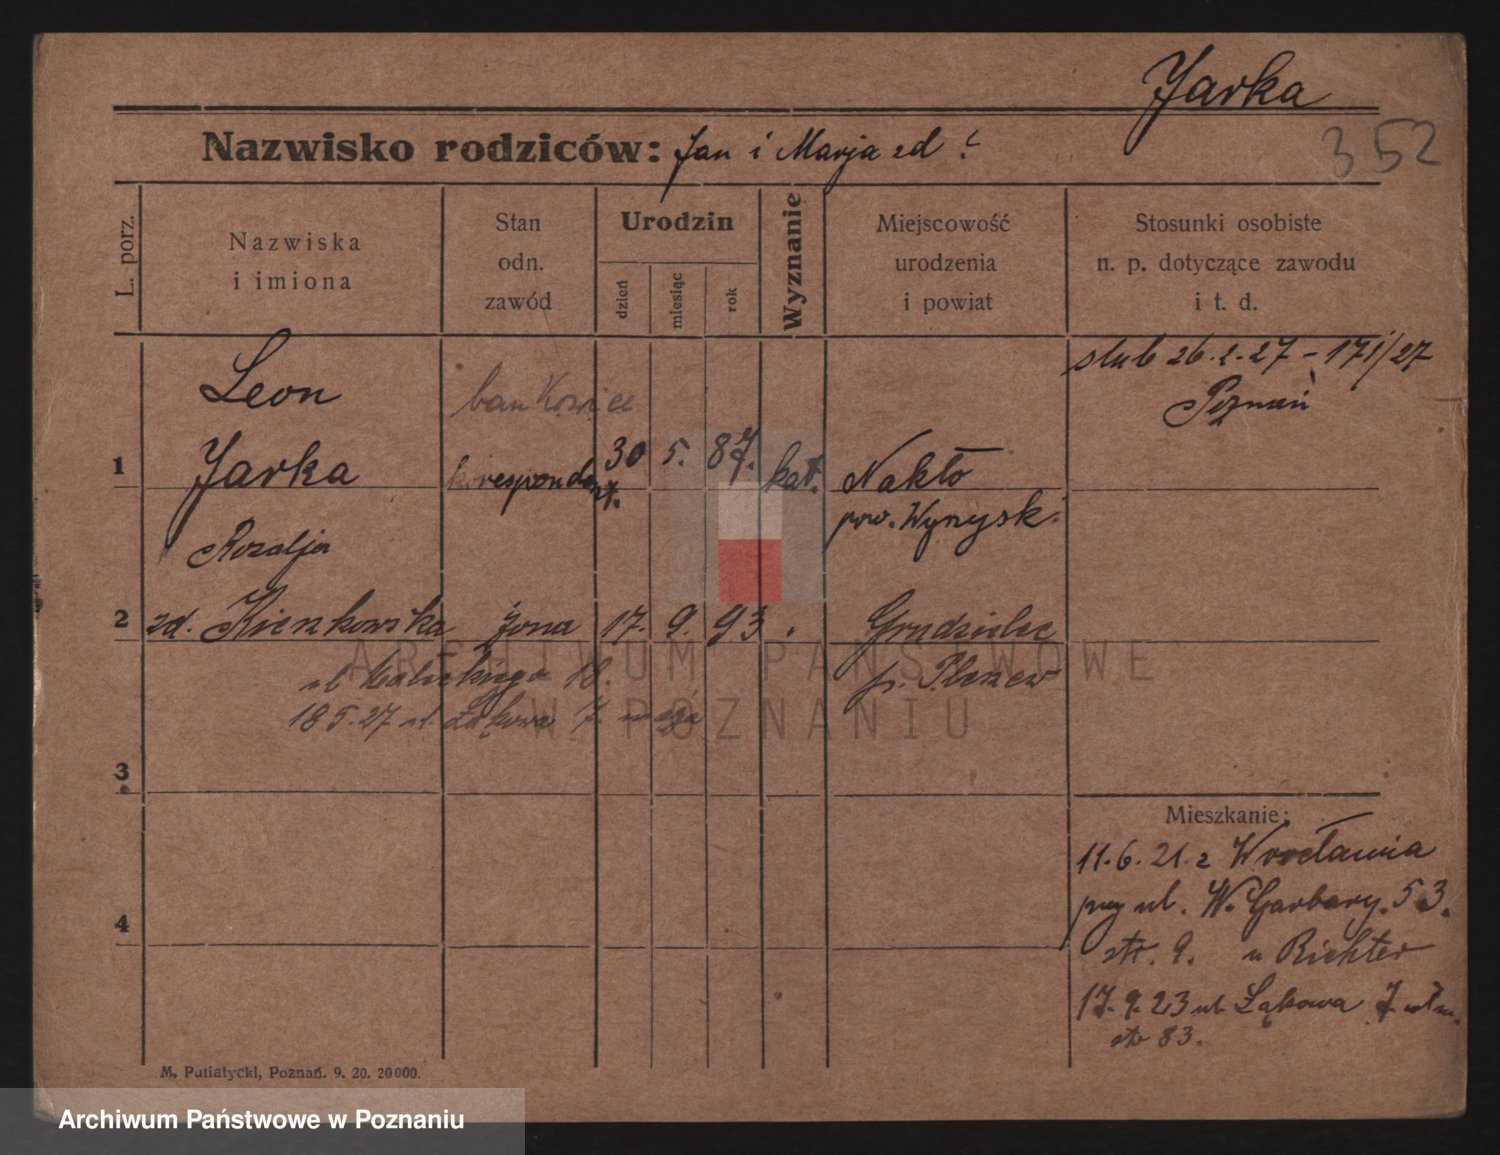 Jarka
352
Nazwisko rodziców: Jan i Marja zd ?
L. porz.
Nazwiska i imiona
Stan odn. zawód
Urodzin
dzień
miesiąc
rok
Wyznanie
Miejscowość urodzenia i powiat
Stosunki osobiste n. p. dotyczące zawodu i t. d.
ślub 26.2.27 - 171/27
Poznań
Leon
bankowiec
1 Jarka korespondent. 30 5. 87. kat. Nakło
pow. Wyrzysk
Rozalja
2 zd. Kienkowska żona 17. 9. 93 Grudzielec
p. Pleszew
ul 18.
18 5.27 ul Łąkowa 7
3
4
Mieszkanie:
11.6.21 z Wrocławia
przy ul. W. Garbary. 53.
str. 9. u Richter
17.9.23 ul Łąkowa 7
str 83.
M. Putiatycki, Poznań. 9. 20. 20000.
ARCHIWUM PAŃSTWOWE
W POZNANIU
Archiwum Państwowe w Poznaniu